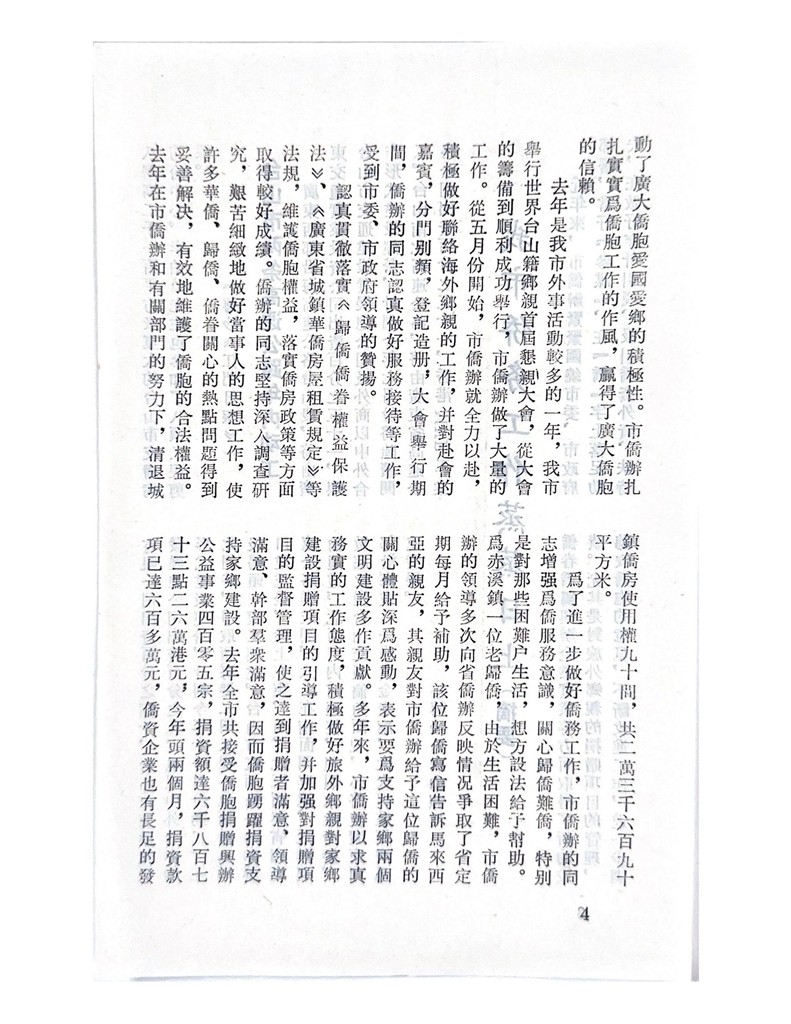 動了廣大僑胞愛國愛鄉的積極性。市僑辦扎
扎實實爲僑胞工作的作風，贏得了廣大僑胞
的信賴。
去年是我市外事活動較多的一年，我市
舉行世界台山籍鄉親首屆懇親大會，從大會
的籌備到順利成功舉行，市僑辦做了大量的
工作。從五月份開始，市僑辦就全力以赴，
積極做好聯絡海外鄉親的工作，并對赴會的
嘉賓，分門别類，登記造册，大會舉行期
間，僑辦的同志認真做好服務接待等工作，
受到市委、市政府領導的贊揚。
認真貫徹落實《歸僑僑眷權益保護
法》、《廣東省城鎮華僑房屋租賃規定》等
法規，維護僑胞權益，落實僑房政策等方面
取得較好成績。僑辦的同志堅持深入調查研
究，艱苦細緻地做好當事人的思想工作，使
許多華僑、歸僑、僑眷關心的熱點問題得到
妥善解决，有效地維護了僑胞的合法權益。
去年在市僑辦和有關部門的努力下，清退城
鎮僑房使用權九十間，共二萬三千六百九十
平方米。
爲了進一步做好僑務工作，市僑辦的同
志增强爲僑服務意識，關心歸僑難僑，特别
是對那些困難户生活，想方設法給于幫助。
爲赤溪鎮一位老歸僑，由於生活困難，市僑
辦的領導多次向省僑辦反映情况爭取了省定
期每月給予補助，該位歸僑寫信告訴馬來西
亞的親友，其親友對市僑辦給予這位歸僑的
關心體貼深爲感動，表示要爲支持家鄉兩個
文明建設多作貢獻。多年來，市僑辦以求真
務實的工作態度，積極做好旅外鄉親對家鄉
建設捐贈項目的引導工作，并加强對捐贈項
目的監督管理，使之達到捐贈者滿意、領導
滿意、幹部羣衆滿意，因而僑胞踴躍捐資支
持家鄉建設。去年全市共接受僑胞捐贈興辦
公益事業四百零五宗，捐資額達六千八百七
十三點二六萬港元，今年頭兩個月，捐資款
項已達六百多萬元，僑資企業也有長足的發
4